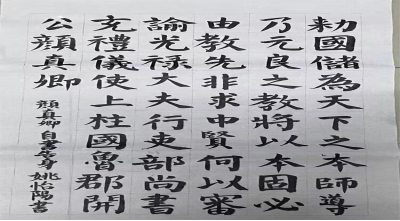 勑國儲為天下之本師導
乃元良之教將以本固必
由教先非求中賢何以審
諭光禄大夫行吏部尚書
充禮儀使上柱國魯郡開
公顏真卿
顏真卿自書告身 姚怡陽書